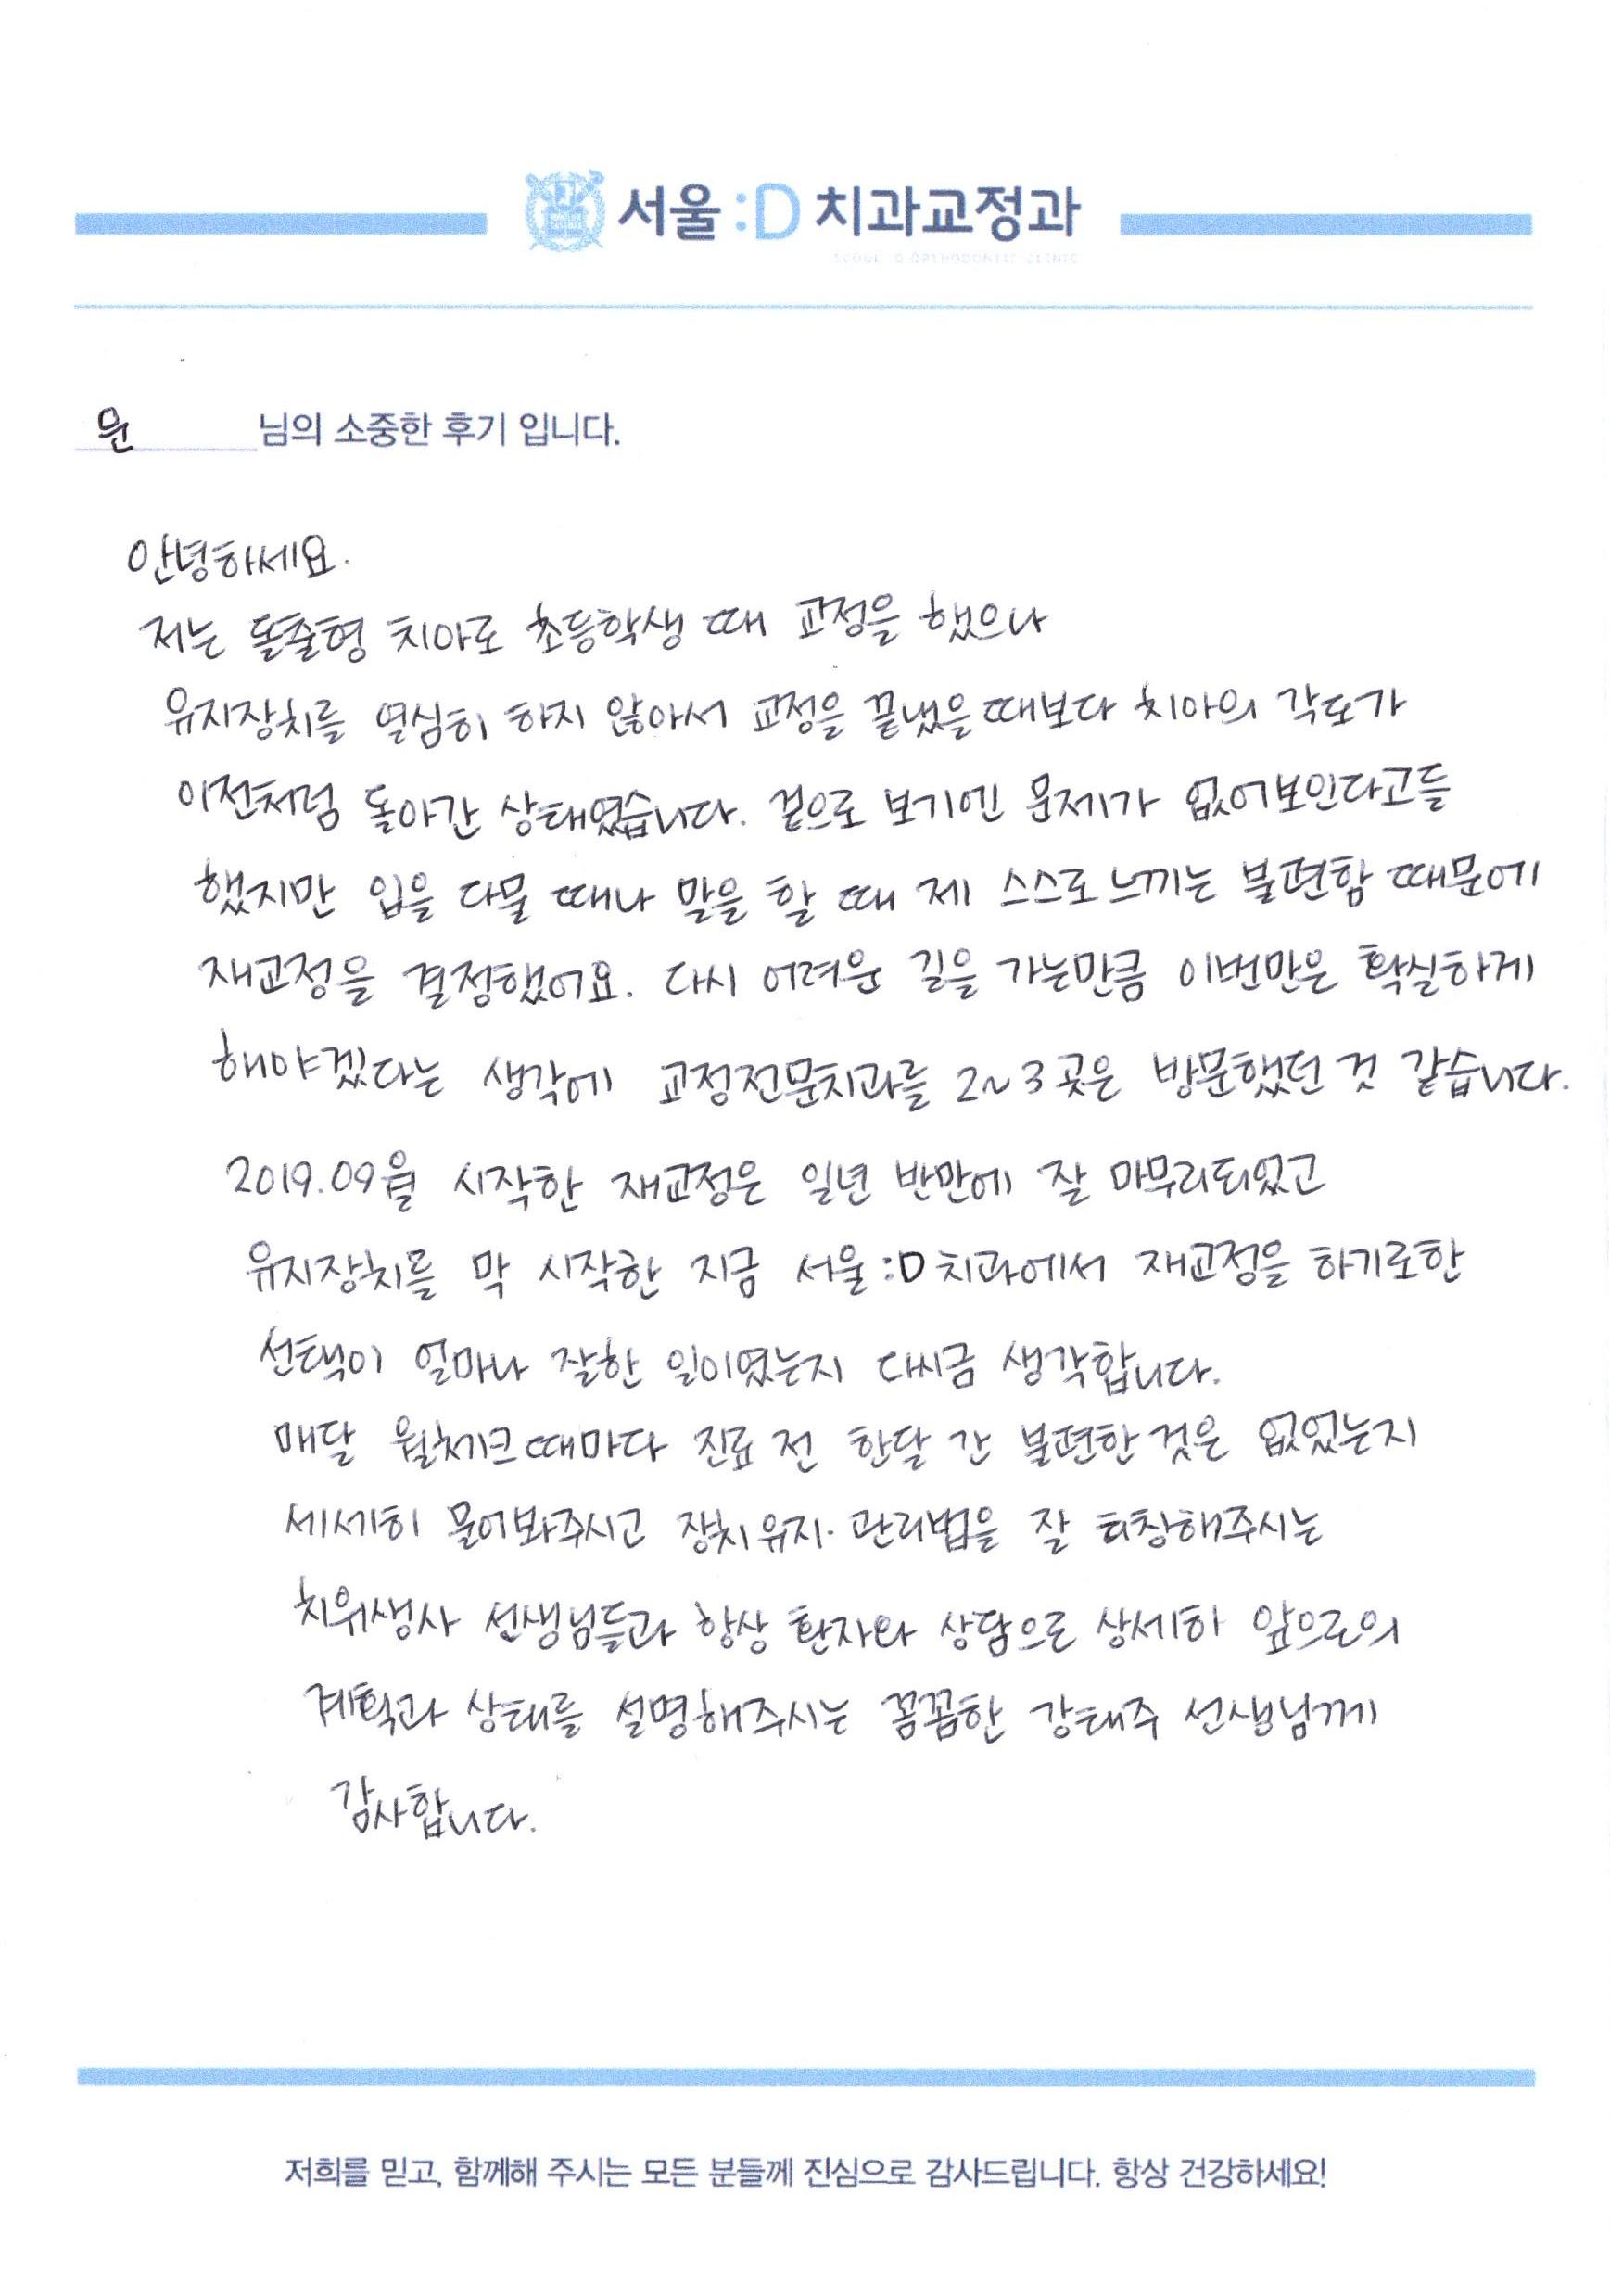 서울:D 치과교정과
SEOUL :D ORTHODONTIC CLINIC
윤 님의 소중한 후기 입니다.
안녕하세요.
저는 돌출형 치아로 초등학생 때 교정을 했으나
유지장치를 열심히 하지 않아서 교정을 끝냈을때보다 치아의 각도가
이전처럼 돌아간 상태였습니다. 겉으로 보기엔 문제가 없어보인다고들
했지만 입을 다물 때나 말을 할 때 제 스스로 느끼는 불편함 때문에
재교정을 결정했어요. 다시 어려운 길을 가는만큼 이번만은 확실하게
해야겠다는 생각에 교정전문치과를 2~3곳은 방문했던 것 같습니다.
2019.09월 시작한 재교정은 일년 반만에 잘 마무리되었고
유지장치를 막 시작한 지금 서울:D치과에서 재교정을 하기로한
선택이 얼마나 잘한 일이였는지 다시금 생각합니다.
매달 월체크때마다 진료 전 한달 간 불편한 것은 없었는지
세세히 물어봐주시고 장치유지·관리법을 잘 코칭해주시는
치위생사 선생님들과 항상 환자와 상담으로 상세하 앞으로의
계획과 상태를 설명해주시는 꼼꼼한 강태주 선생님께
감사합니다.
저희를 믿고, 함께해 주시는 모든 분들께 진심으로 감사드립니다. 항상 건강하세요!